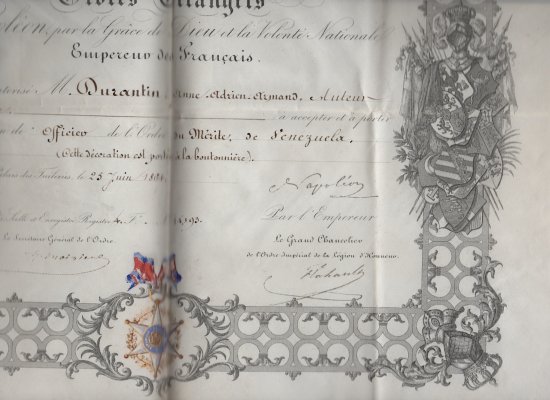 Ordres Etrangers
par la Grâce de Dieu et la Volonté Nationale
Empereur des Français.
M. Durantin, Anne-Adrien-Armand, Auteur
à accepter et à porter
de Officier de l'Ordre du Mérite, de Venezuela.
(Cette décoration est portée à la boutonnière).
Palais des Tuileries, le 25 Juin
Napoléon
Par l'Empereur
Le Secrétaire Général de l'Ordre.
Le Grand Chancelier
de l'Ordre Impérial de la Légion d'Honneur.